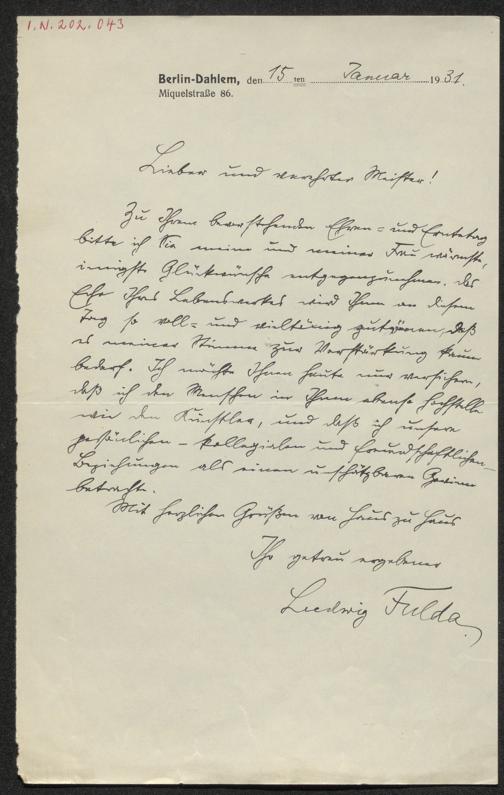 I.N. 202.043
Berlin-Dahlem, den 15 ten Januar 1931.
Miquelstraße 86.
Lieber und verehrter Meister!
Zu Ihrem bevorstehenden Ehren- und Erntetag
bitte ich Sie meine und meiner Frau wärmste,
innigste Glückwünsche entgegenzunehmen. Das
Echo Ihres Lebenswerkes wird Ihnen an diesem
Tag so voll- und vieltönig zutönen, daß
es meiner Stimme zur Verstärkung kaum
bedarf. Ich möchte Ihnen heute nur versichern,
daß ich den Menschen in Ihnen ebenso hochstelle
wie den Künstler, und daß ich unsere
persönlichen - kollegialen und freundschaftlichen -
Beziehungen als einen unschätzbaren Gewinn
betrachte.
Mit herzlichen Grüßen von Haus zu Haus
Ihr getreu ergebener
Ludwig Fulda.